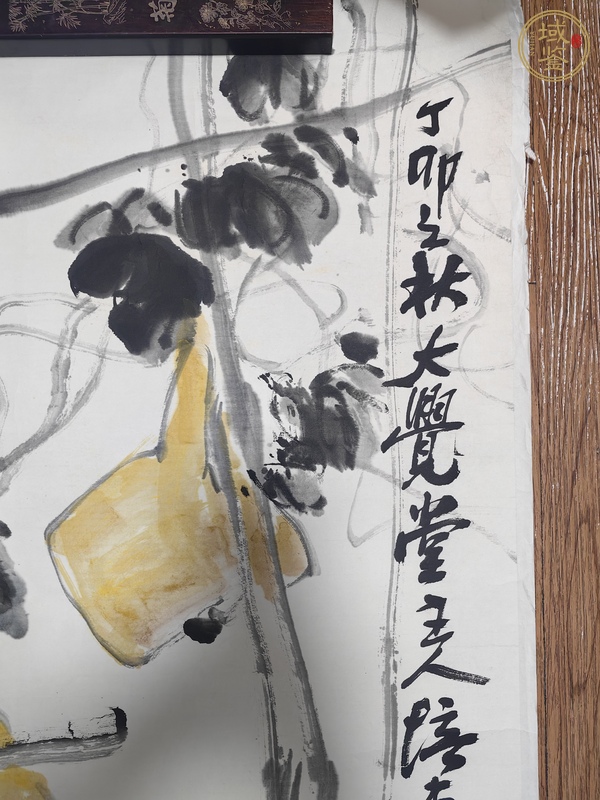 域鉴
菊
丁卯之秋大覺堂主人培